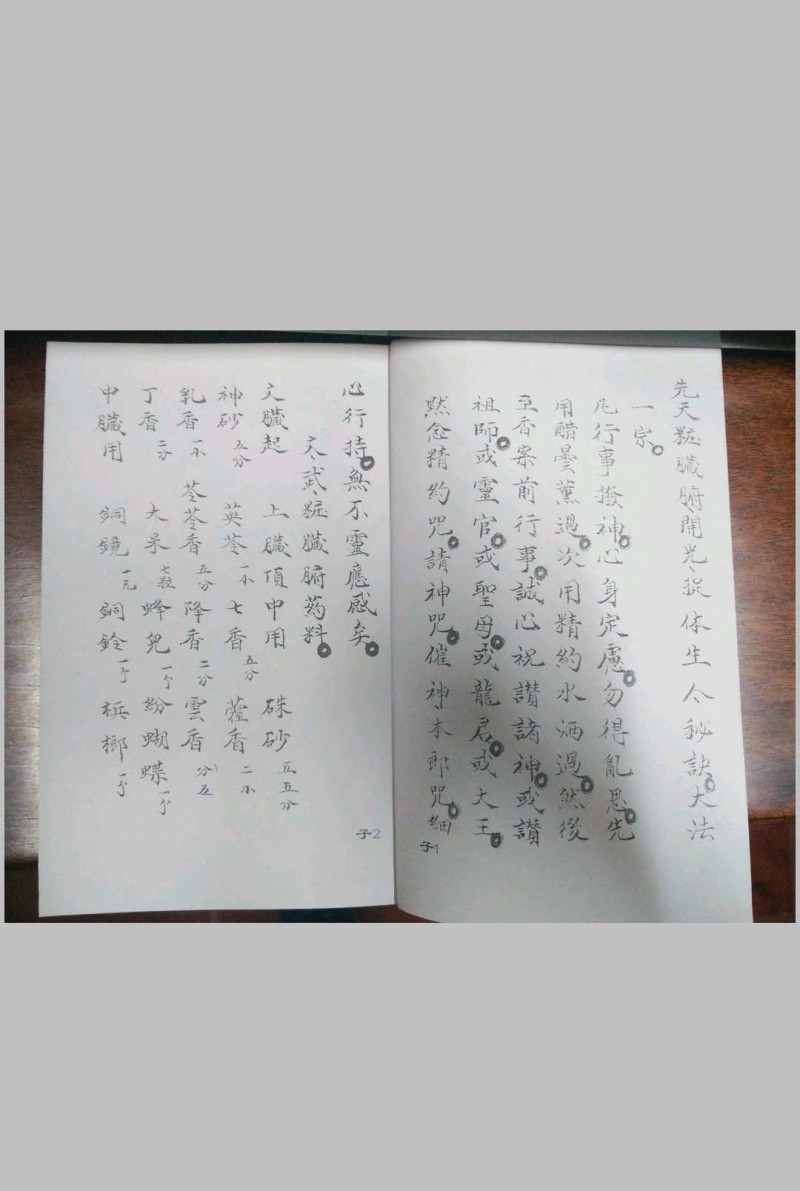 先天粧臟腑開光捉体生人秘訣大法
一宗
凡行事撥神心身定慮勿得亂思先
用醋曇薰過次用精約水洒過然後
至香案前行事誠心祝讃諸神或讃
祖師或靈官或聖母或龍君或大王
黙念精約咒請神咒催神本郎咒細
子1
心行持無不靈應感矣
文武粧臟腑葯料
文臟起 上臟頂中用 硃砂五五分
神砂五分 英苓一小 七香五分 藿香二小
乳香一小 苓苓香五分 降香二分 雲香
丁香二分 大米七粒 蜂兒一个 紛蝴蝶一个
中臟用 銅鏡一元 銅鈴一个 梹榔一个
子2